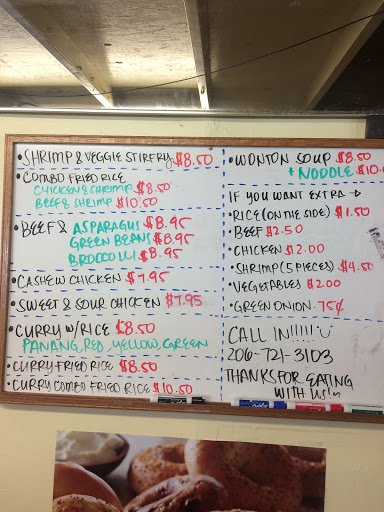 • SHRIMP & VEGGIE STIRFRY $8.50
• COMBO FRIED RICE
CHICKEN & SHRIMP $8.50
BEEF & SHRIMP $10.50
• BEEF & ASPARAGUS $8.95
GREEN BEANS $8.95
BROCCOLLI $8.95
• CASHEW CHICKEN $7.95
• SWEET & SOUR CHICKEN $7.95
• CURRY W/RICE $8.50
PANANG, RED, YELLOW, GREEN
• CURRY FRIED RICE $8.50
• CURRY COMBO FRIED RICE $10.50
• WONTON SOUP $8.50
+ NODDLE $10.
IF YOU WANT EXTRA →
• RICE (ON THE SIDE) $1.50
• BEEF $2.50
• CHICKEN $2.00
• SHRIMP (5 PIECES) $4.50
• VEGETABLES $2.00
• GREEN ONION - 75¢
CALL IN!!!!!
206-721-3103
THANKS FOR EATING
WITH US!